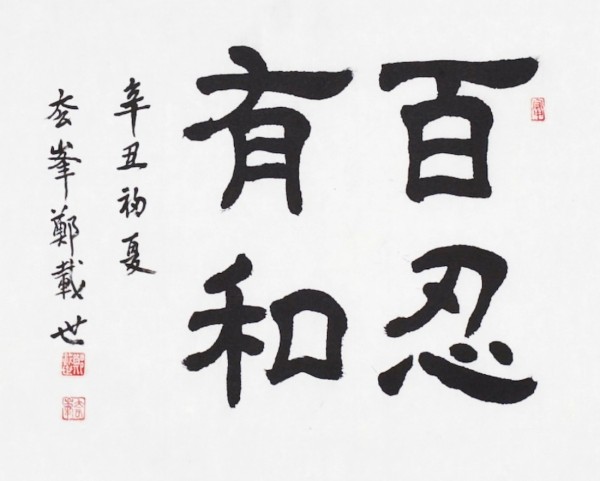 百忍
有和
辛丑初夏
峯鄭載世